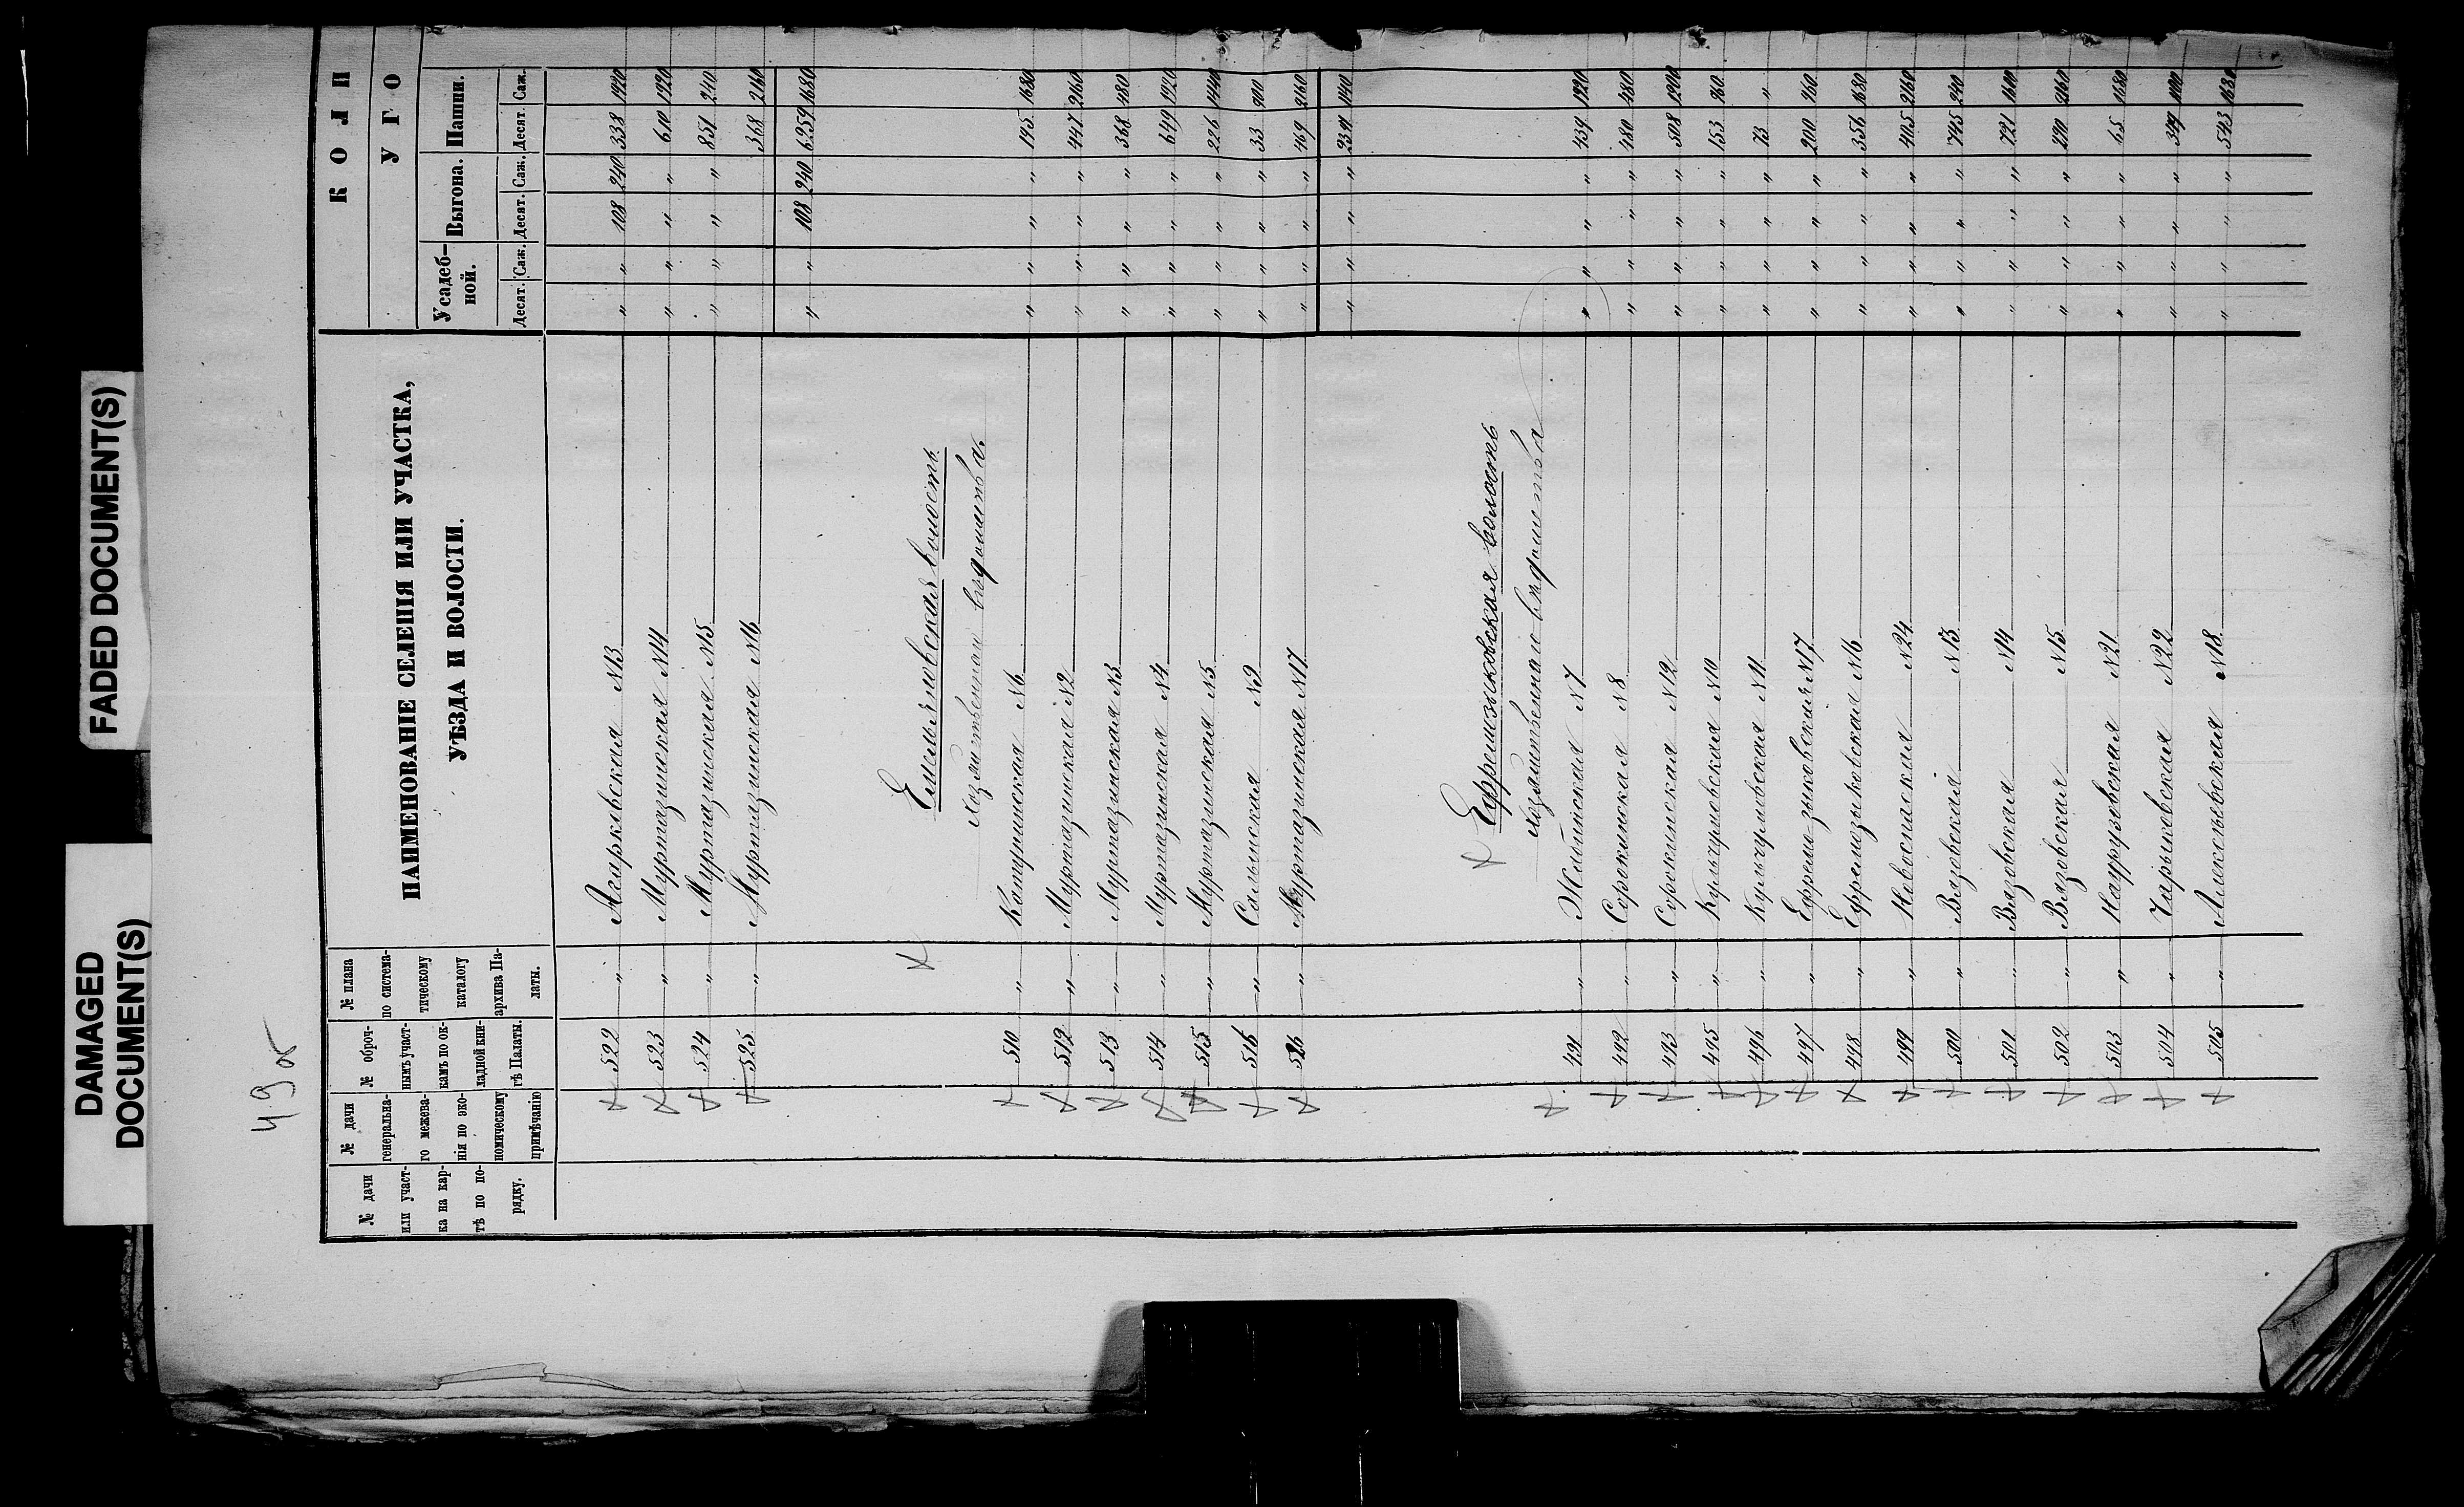 FADED DOCUMENT(S)
DAMAGED
DOCUMENT(S)
49 об
№ дачи
или участ-
ка на кар-
тѣ по по-
рядку.
№ дачи
генеральна-
го межева-
нія по эко-
номическому
примѣчанію
№ оброч-
нымъ участ-
камъ по ок-
ладной кни-
гѣ Палаты.
№ плана
по система-
тическому
каталогу
архива Па-
латы.
НАИМЕНОВАНІЕ СЕЛЕНІЯ ИЛИ УЧАСТКА,
УѢЗДА И ВОЛОСТИ.
КОЛИ
УГО
Усадеб-
ной.
Выгона.
Пашни.
Десят. Саж. Десят. Саж. Десят. Саж.
522 " Агарковская №13 " " 108 240 338 1920
523 " Муртазинская №14 " " " " 610 1920
524 " Муртазинская №15 " " " " 851 240
525 " Муртазинская №16 368 2160
" " 108 240 6259 1680
Емельяновская волость
хозяйственнаго вѣдомства.
510 " Катунинская №6 " " " " 195 1680
512 " Муртазинская №2 " " " " 447 2160
513 " Муртазинская №3 " " " " 368 480
514 " Муртазинская №4 " " " " 649 1920
515 " Муртазинская №5 " " " " 226 1440
516 " Сальинская №9 " " " " 33
526 " Муртазинская №17 " " " " 469 2160
" " " " 2391 1140
Ефремзыковская волость
хозяйственнаго вѣдомства
491 " Жабинская №7 " " " " 439 1920
492 " Сорокинская №8 " " " " 480 480
493 " Сорокинская №12 " " " " 508 1200
495 " Кульчумовская №10 " " " " 153 960
496 " Кульчумовская №11 " " " " 73 "
497 " Ефремзыковская №17 " " " " 200 960
498 " Ефремзыковская №16 " " " " 356 1680
499 " Новоспаская №24 " " " " 405 2160
500 " Вязовская №13 " " " " 745 240
501 " Вязовская №14 " " " " 721
502 " Вязовская №15 " " " " 290 2160
503 " Наурузовская №21 " " " " 65 1680
504 " Чарыковская №22 " " " " 349
505 " Алексѣевская №18 " " " " 543 1680